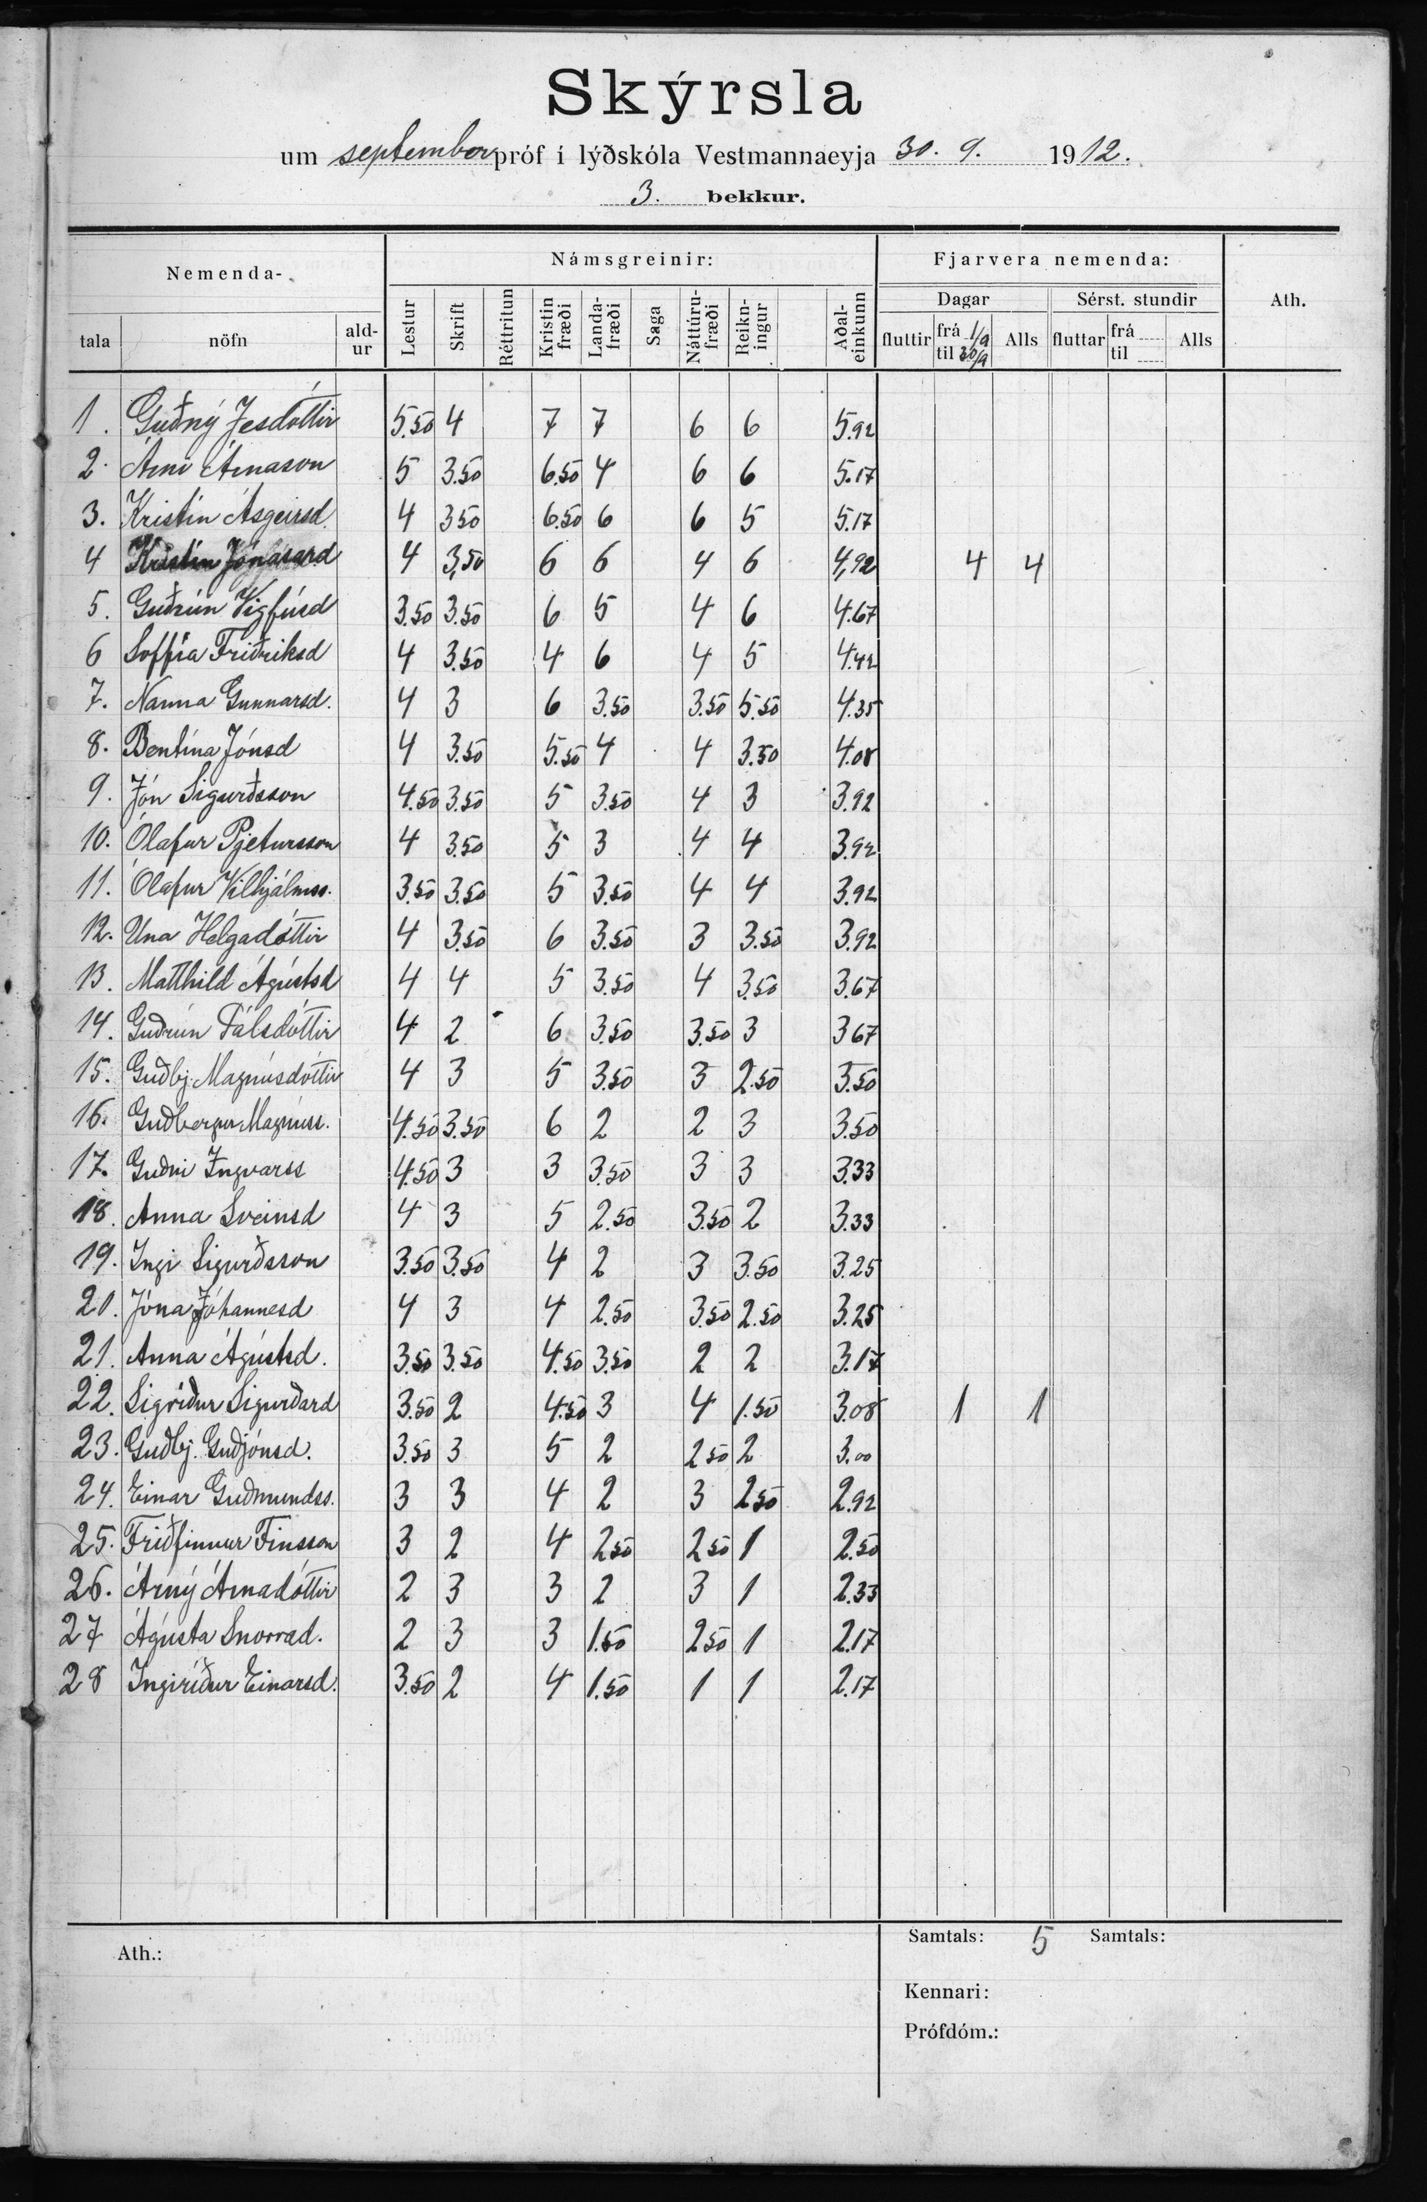 Skýrsla
um septemberpróf í lýðskóla Vestmannaeyja 30. 9. 1912.
3. bekkur.
Nemenda- Námsgreinir: Fjarvera nemenda: Ath.
Dagar Sérst. stundir
tala nöfn ald-ur Lestur Skrift Réttritun Kristin fræði Landa-fræði Saga Náttúru-fræði Reikn-ingur Aðal-einkunn fluttir frá 1/9 til 30/9 Alls fluttar frá til Alls
1. Guðný Jesdóttir 5.50 4 7 7 6 6 5.92
2. Árni Árnason 5 3.50 6.50 4 6 6 5.17
3. Kristín Ásgeirsd. 4 3 50 6.50 6 6 5 5.17
4 Kristín Jónasard 4 3,50 6 6 4 6 4,92 4 4
5. Guðrún Vigfúsd 3.50 3.50 6 5 4 6 4.67
6 Soffía Friðriksd 4 3.50 4 6 4 5 4.42
7. Nanna Gunnarsd. 4 3 6 3.50 3.50 5.50 4.35
8. Bentína Jónsd 4 3.50 5.50 4 4 3.50 4.08
9. Jón Sigurðsson 4.50 3.50 5 3.50 4 3 3.92
10. Ólafur Pjetursson 4 3.50 5 3 4 4 3.92
11. Ólafur Vilhjálmss. 3.50 3.50 5 3.50 4 4 3.92
12. Una Helgadóttir 4 3.50 6 3.50 3 3.50 3.92
13. Matthild Ágústsd 4 4 5 3.50 4 3.50 3.67
14. Guðrún Pálsdóttir 4 2 6 3.50 3.50 3 3 67
15. Guðbj. Magnúsdóttir 4 3 5 3.50 3 2.50 3.50
16. Guðbergur Magnúss. 4.50 3.50 6 2 2 3 3.50
17. Guðni Ingvarss 4.50 3 3 3.50 3 3 3.33
18. Anna Sveinsd 4 3 5 2.50 3.50 2 3.33
19. Ingi Sigurðsson 3.50 3.50 4 2 3 3.50 3.25
20. Jóna Jóhannesd 4 3 4 2.50 3.50 2.50 3.25
21. Anna Ágústsd. 3.50 3.50 4.50 3.50 2 2 3.17
22. Sigríður Sigurðard 3.50 2 4.50 3 4 1.50 3.08 1 1
23. Guðbj. Guðjónsd. 3.50 3 5 2 2 50 2 3.00
24. Einar Guðmundss. 3 3 4 2 3 2 50 2.92
25. Friðfinnur Finsson 3 2 4 2 50 2 50 1 2.50
26. Árný Árnadóttir 2 3 3 2 3 1 2.33
27 Ágústa Snorrad. 2 3 3 1.50 2 50 1 2.17
28 Ingiríður Einarsd. 3.50 2 4 1.50 1 1 2.17
Ath.: Samtals: 5 Samtals:
Kennari:
Prófdóm.: